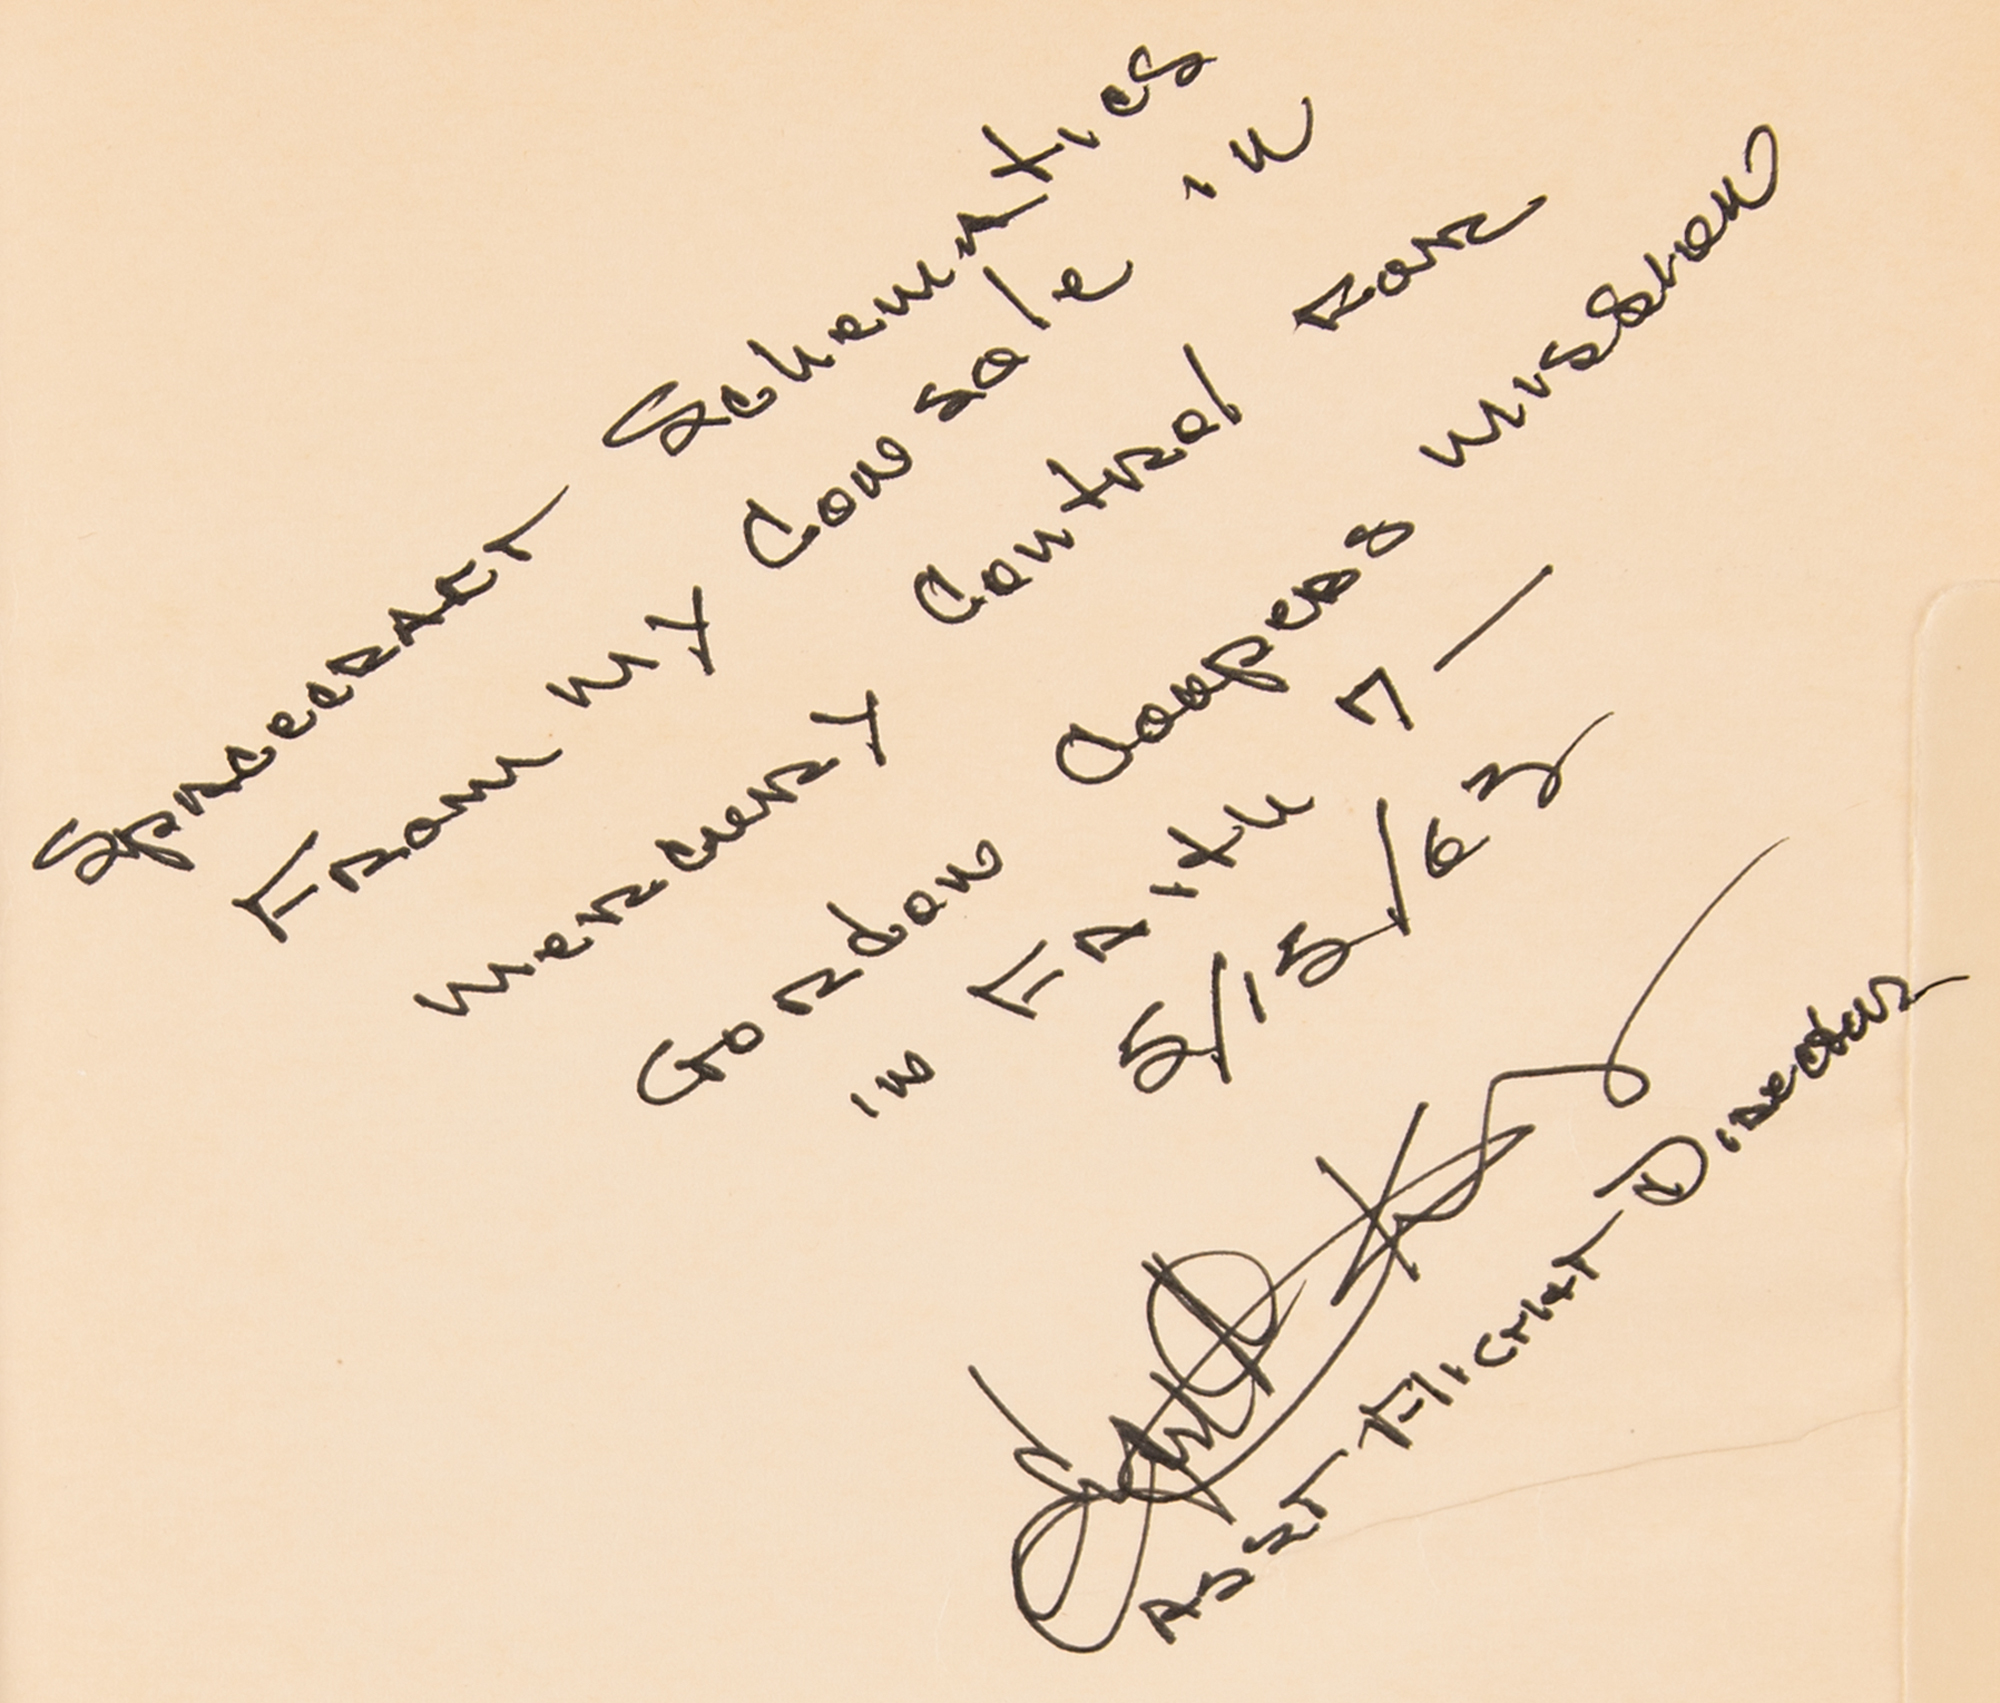 Spacecraft Schematics
From my Console in
Mercury Control For
Gordon Coopers Mission
in Faith 7 —
5/15/63
Asst Flight Director